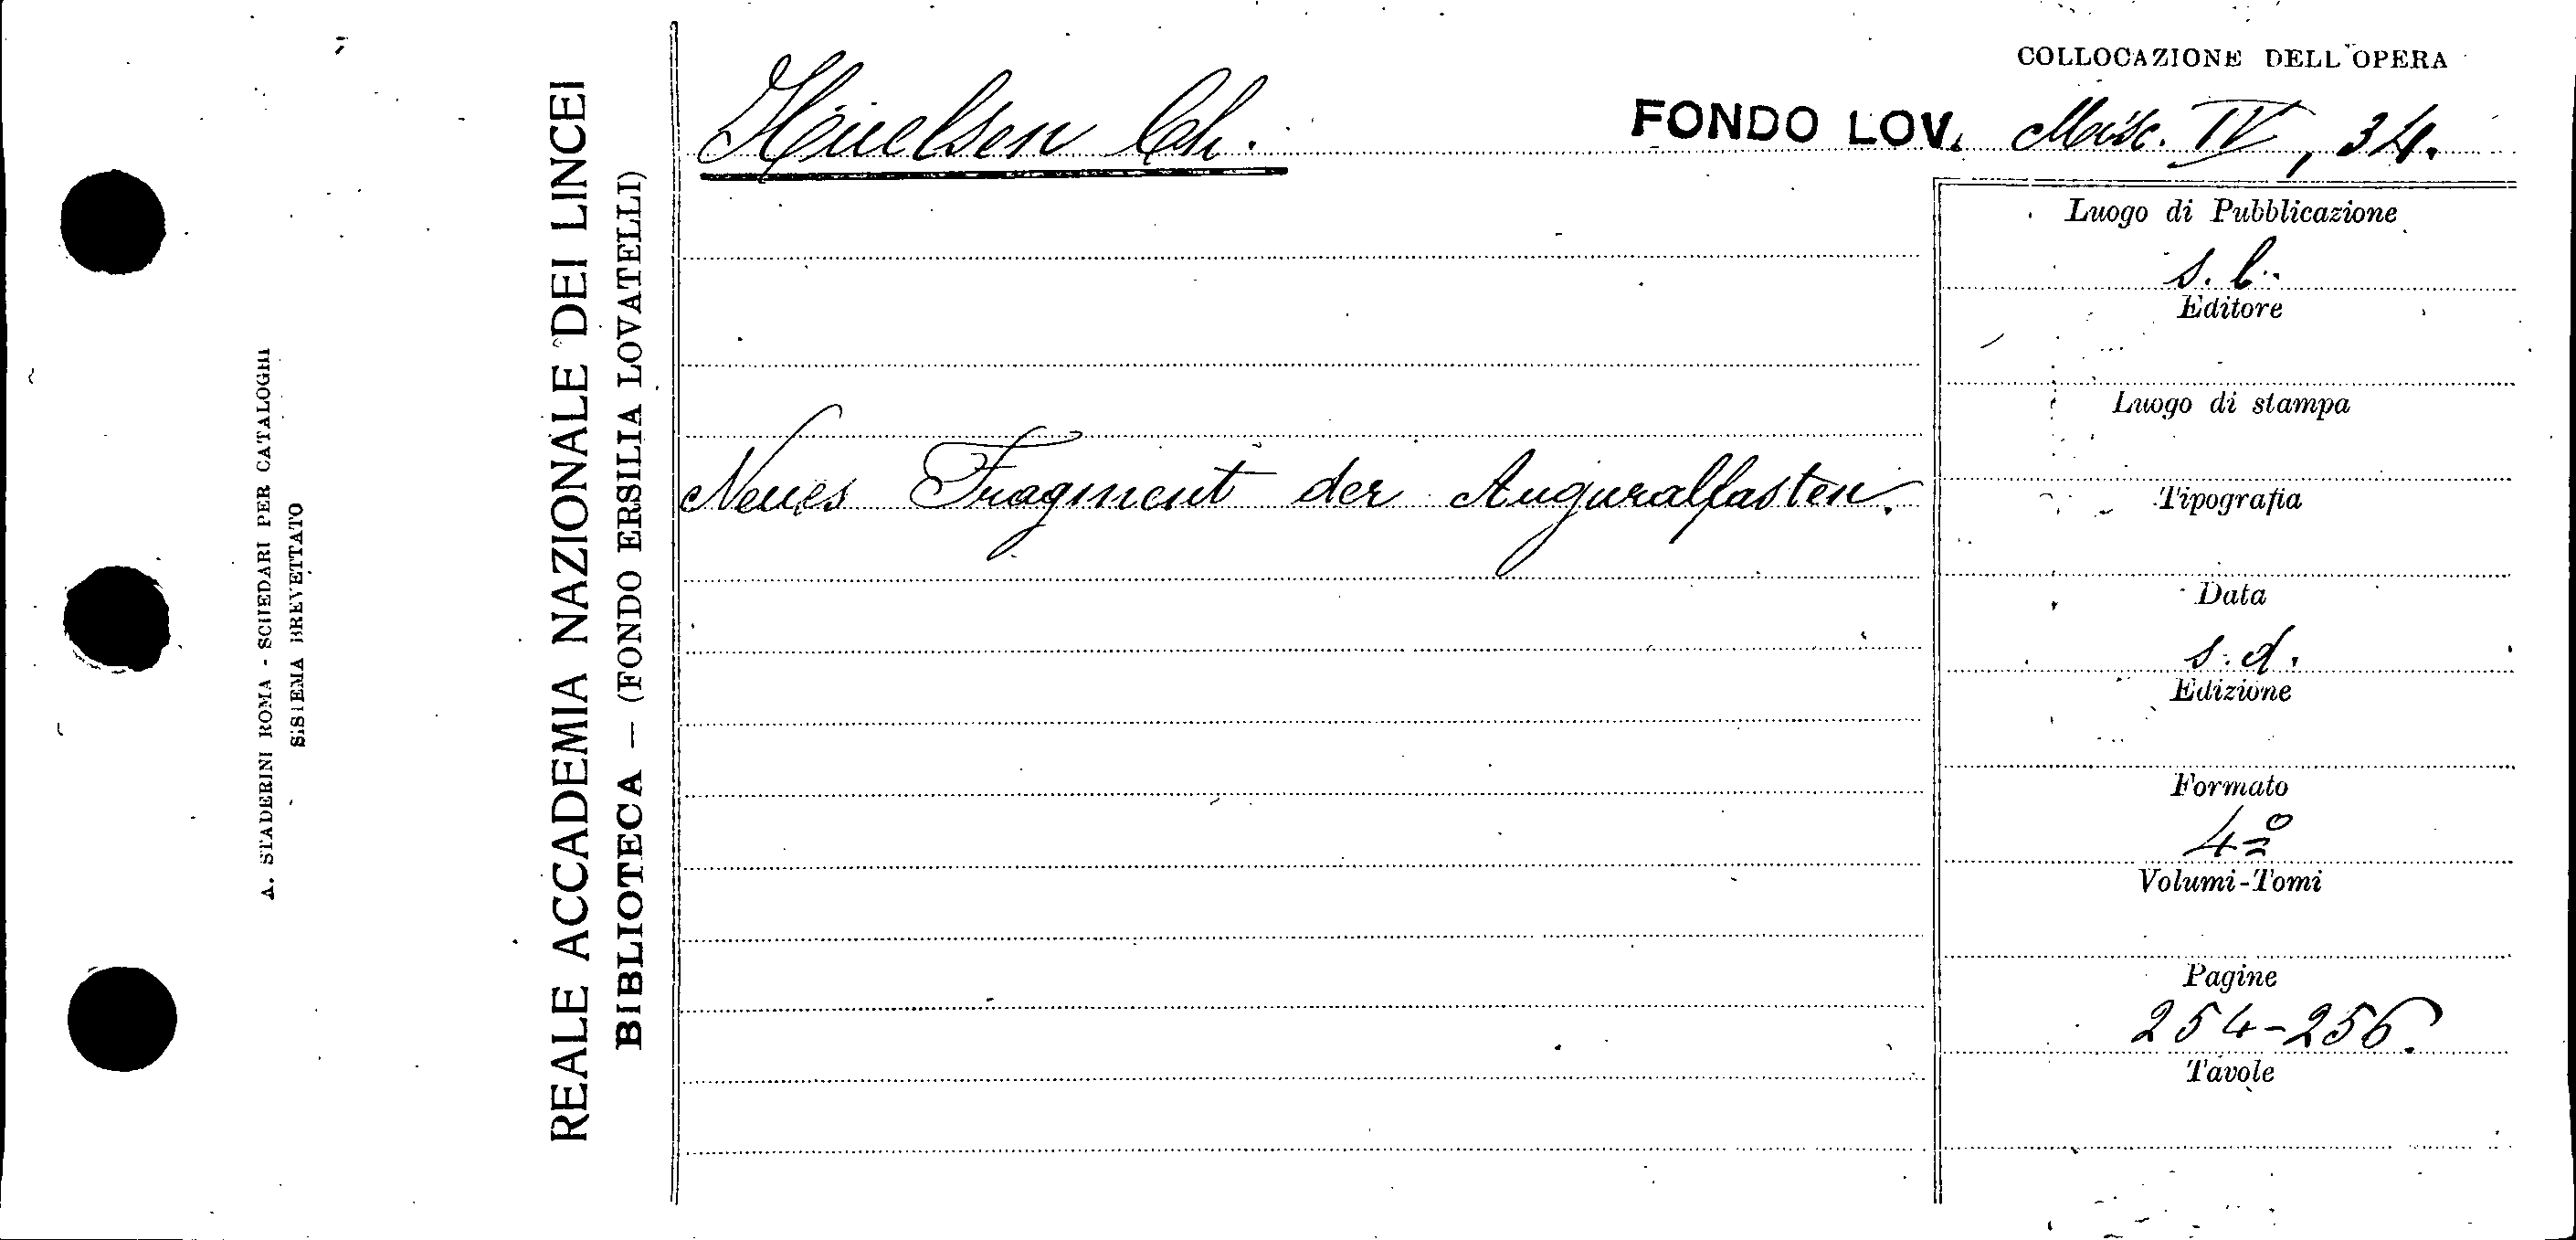 COLLOCAZIONE DELL'OPERA
Hüelsen Ch.
FONDO LOV. Misc. IV, 34.
Neues Fragment der Auguralfasten.
Luogo di Pubblicazione
s. l.
Editore
Luogo di stampa
Tipografia
Data
s. d.
Edizione
Formato
4º
Volumi-Tomi
Pagine
254-256.
Tavole
REALE ACCADEMIA NAZIONALE DEI LINCEI
BIBLIOTECA — (FONDO ERSILIA LOVATELLI)
A. STADERINI ROMA - SCHEDARI PER CATALOGHI
SISTEMA BREVETTATO